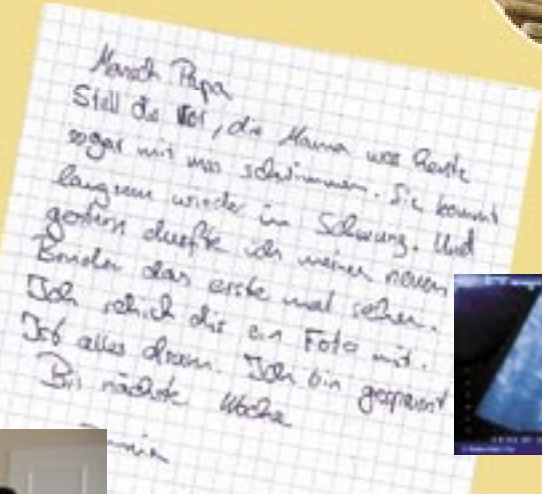 Papa
Stell dir vor, die Mama war heute
sogar mit uns schwimmen. Sie kommt
langsam wieder in Schwung. Und
gestern durfte ich meinen neuen
Bruder das erste mal sehen.
Ich schick dir ein Foto mit.
Ist alles dran. Ich bin gespannt
Bis nächste Woche